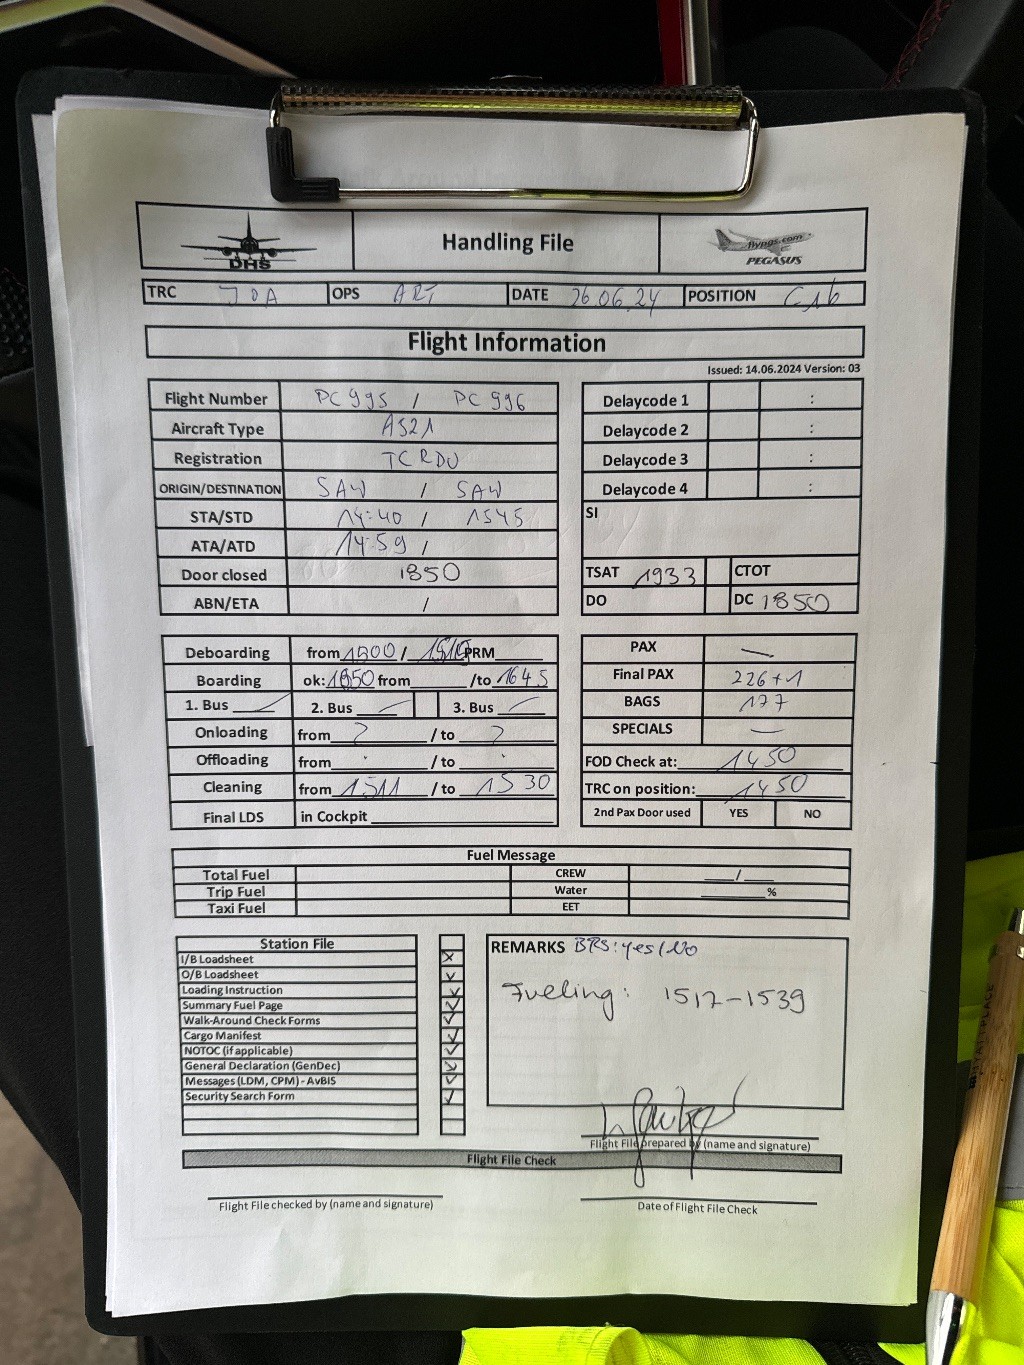 DHS
Handling File
flypgs.com
PEGASUS
TRC JOA OPS ART DATE 26.06.24 POSITION C16
Flight Information
Issued: 14.06.2024 Version: 03
Flight Number PC 995 / PC 996
Aircraft Type A321
Registration TC RDU
ORIGIN/DESTINATION SAW / SAW
STA/STD 14:40 / 1545
ATA/ATD 14:59 /
Door closed 1850
ABN/ETA /
Delaycode 1 :
Delaycode 2 :
Delaycode 3 :
Delaycode 4 :
SI
TSAT 1933 CTOT
DO DC 1850
Deboarding from 1500 / PRM
Boarding ok: from /to 1645
1. Bus 2. Bus 3. Bus
Onloading from ? / to ?
Offloading from / to
Cleaning from 1511 / to 1530
Final LDS in Cockpit
PAX —
Final PAX 226+1
BAGS 177
SPECIALS —
FOD Check at: 1450
TRC on position: 1450
2nd Pax Door used YES NO
Fuel Message
Total Fuel CREW /
Trip Fuel Water %
Taxi Fuel EET
Station File
I/B Loadsheet
O/B Loadsheet
Loading Instruction
Summary Fuel Page
Walk-Around Check Forms
Cargo Manifest
NOTOC (if applicable)
General Declaration (GenDec)
Messages (LDM, CPM) - AvBIS
Security Search Form
REMARKS BRS: yes/No
Fueling: 1517-1539
Flight File prepared by (name and signature)
Flight File Check
Flight File checked by (name and signature)
Date of Flight File Check